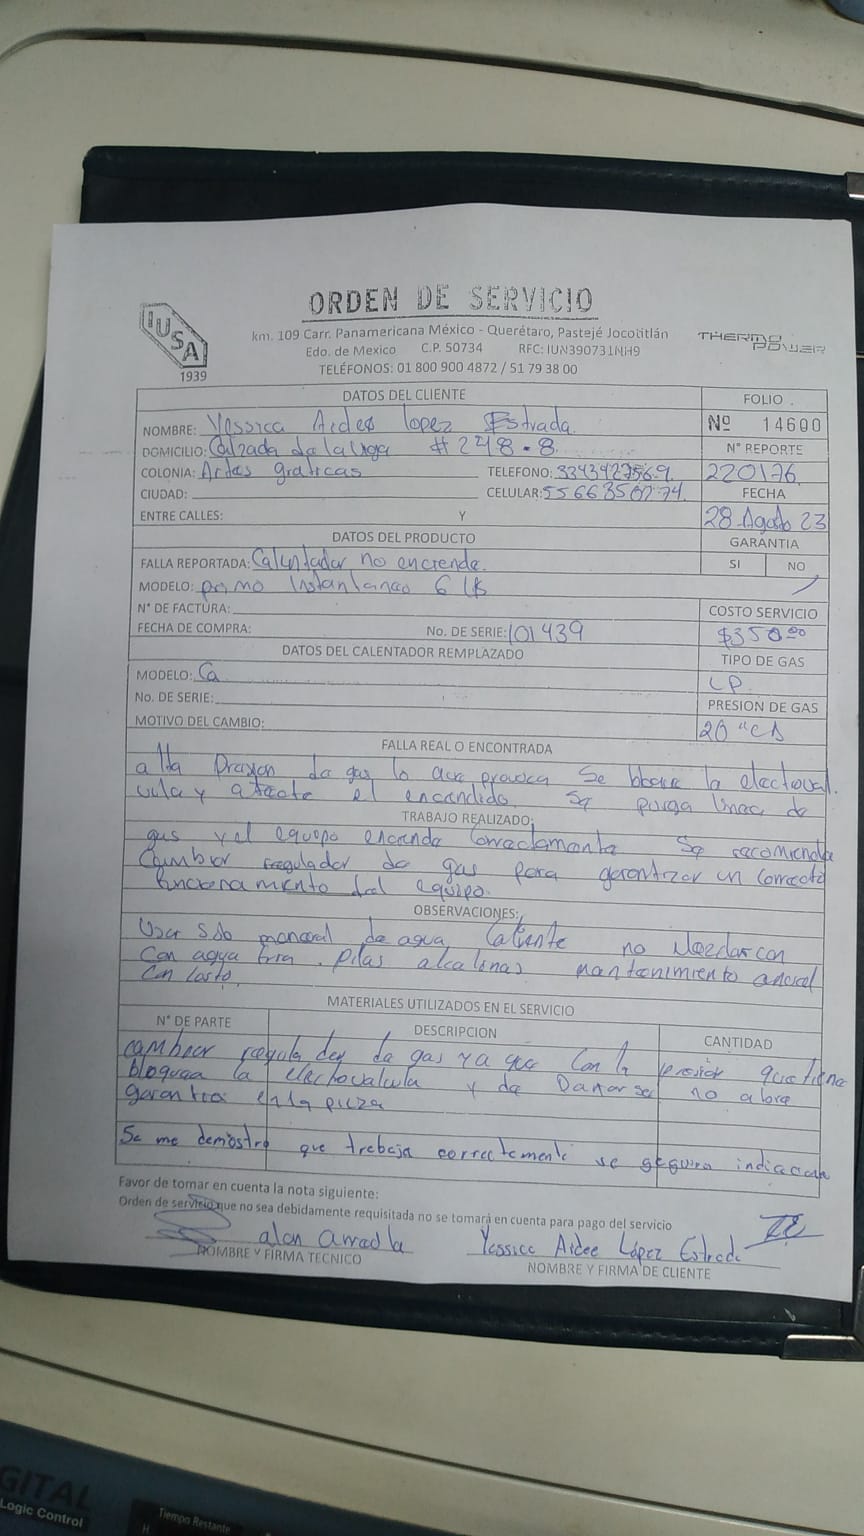 ORDEN DE SERVICIO
IUSA
1939
km. 109 Carr. Panamericana México - Querétaro, Pastejé Jocotitlán
THERMO POWER
Edo. de Mexico C.P. 50734 RFC: IUN390731NH9
TELÉFONOS: 01 800 900 4872 / 51 79 38 00
DATOS DEL CLIENTE
FOLIO
NOMBRE: Yessica Aidee Lopez Estrada
Nº 14600
DOMICILIO: Calzada de la Viga #248-8
N° REPORTE
COLONIA: Artes graficas TELEFONO: 3343427569
220176
CIUDAD: CELULAR:
FECHA
ENTRE CALLES: Y
28 Agosto 23
DATOS DEL PRODUCTO
GARANTIA
FALLA REPORTADA: Calentador no enciende.
SI NO
MODELO: Instantaneo 6
N° DE FACTURA:
COSTO SERVICIO
FECHA DE COMPRA: No. DE SERIE: 101439
$350.00
DATOS DEL CALENTADOR REMPLAZADO
TIPO DE GAS
MODELO: Ca
LP
No. DE SERIE:
PRESION DE GAS
MOTIVO DEL CAMBIO:
20 "CA
FALLA REAL O ENCONTRADA
alta Presion de gas lo que provoca se bloque la electroval
vula y afecte el encendido. Se purga linea de
TRABAJO REALIZADO:
gas y el equipo enciende Correctamente Se recomienda
Cambiar regulador de gas para garantizar un correcto
funcionamiento del equipo.
OBSERVACIONES:
Usar solo maneral de agua Caliente no Mezclar con
Con agua fria. Pilas alcalinas mantenimiento anual
Con Costo.
MATERIALES UTILIZADOS EN EL SERVICIO
N° DE PARTE DESCRIPCION CANTIDAD
cambiar regulador de gas ya que Con la presion que tiene
bloquea la electrovalvula y de Dañarse no abra
garantia en la pieza
Se me demostro que trabaja correctamente se seguira indicacion
Favor de tomar en cuenta la nota siguiente:
Orden de servicio que no sea debidamente requisitada no se tomará en cuenta para pago del servicio
alan
Yessica Aidee López Estrada
NOMBRE Y FIRMA TECNICO
NOMBRE Y FIRMA DE CLIENTE
GITAL
Logic Control
Tiempo Restante
H